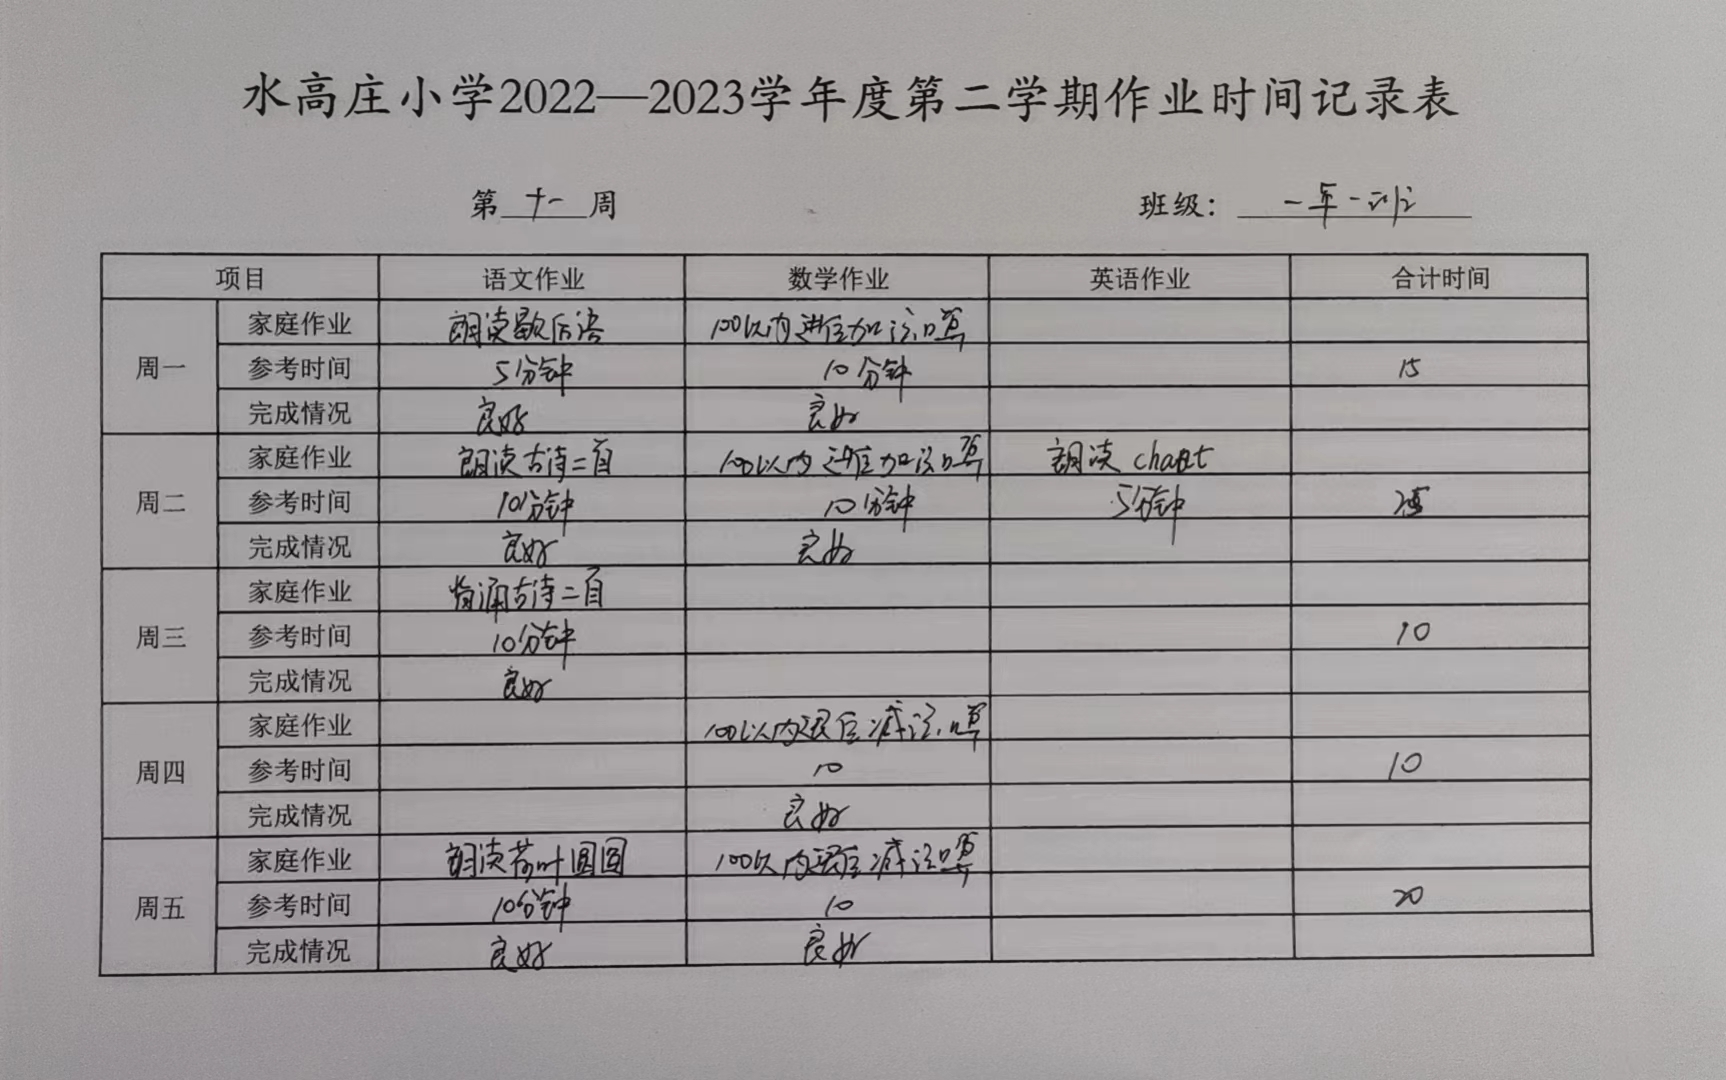 水高庄小学2022—2023学年度第二学期作业时间记录表
第 十一 周 班级： 一年一班
项目 语文作业 数学作业 英语作业 合计时间
周一
家庭作业 朗读歇后语 100以内进位加法口算
参考时间 5分钟 10分钟 15
完成情况 良好 良好
周二
家庭作业 朗读古诗二首 100以内进位加法口算 朗读
参考时间 10分钟 10分钟 5分钟 25
完成情况 良好 良好
周三
家庭作业 背诵古诗二首
参考时间 10分钟 10
完成情况 良好
周四
家庭作业 100以内退位减法口算
参考时间 10 10
完成情况 良好
周五
家庭作业 朗读荷叶圆圆 100以内退位减法口算
参考时间 10分钟 10 20
完成情况 良好 良好